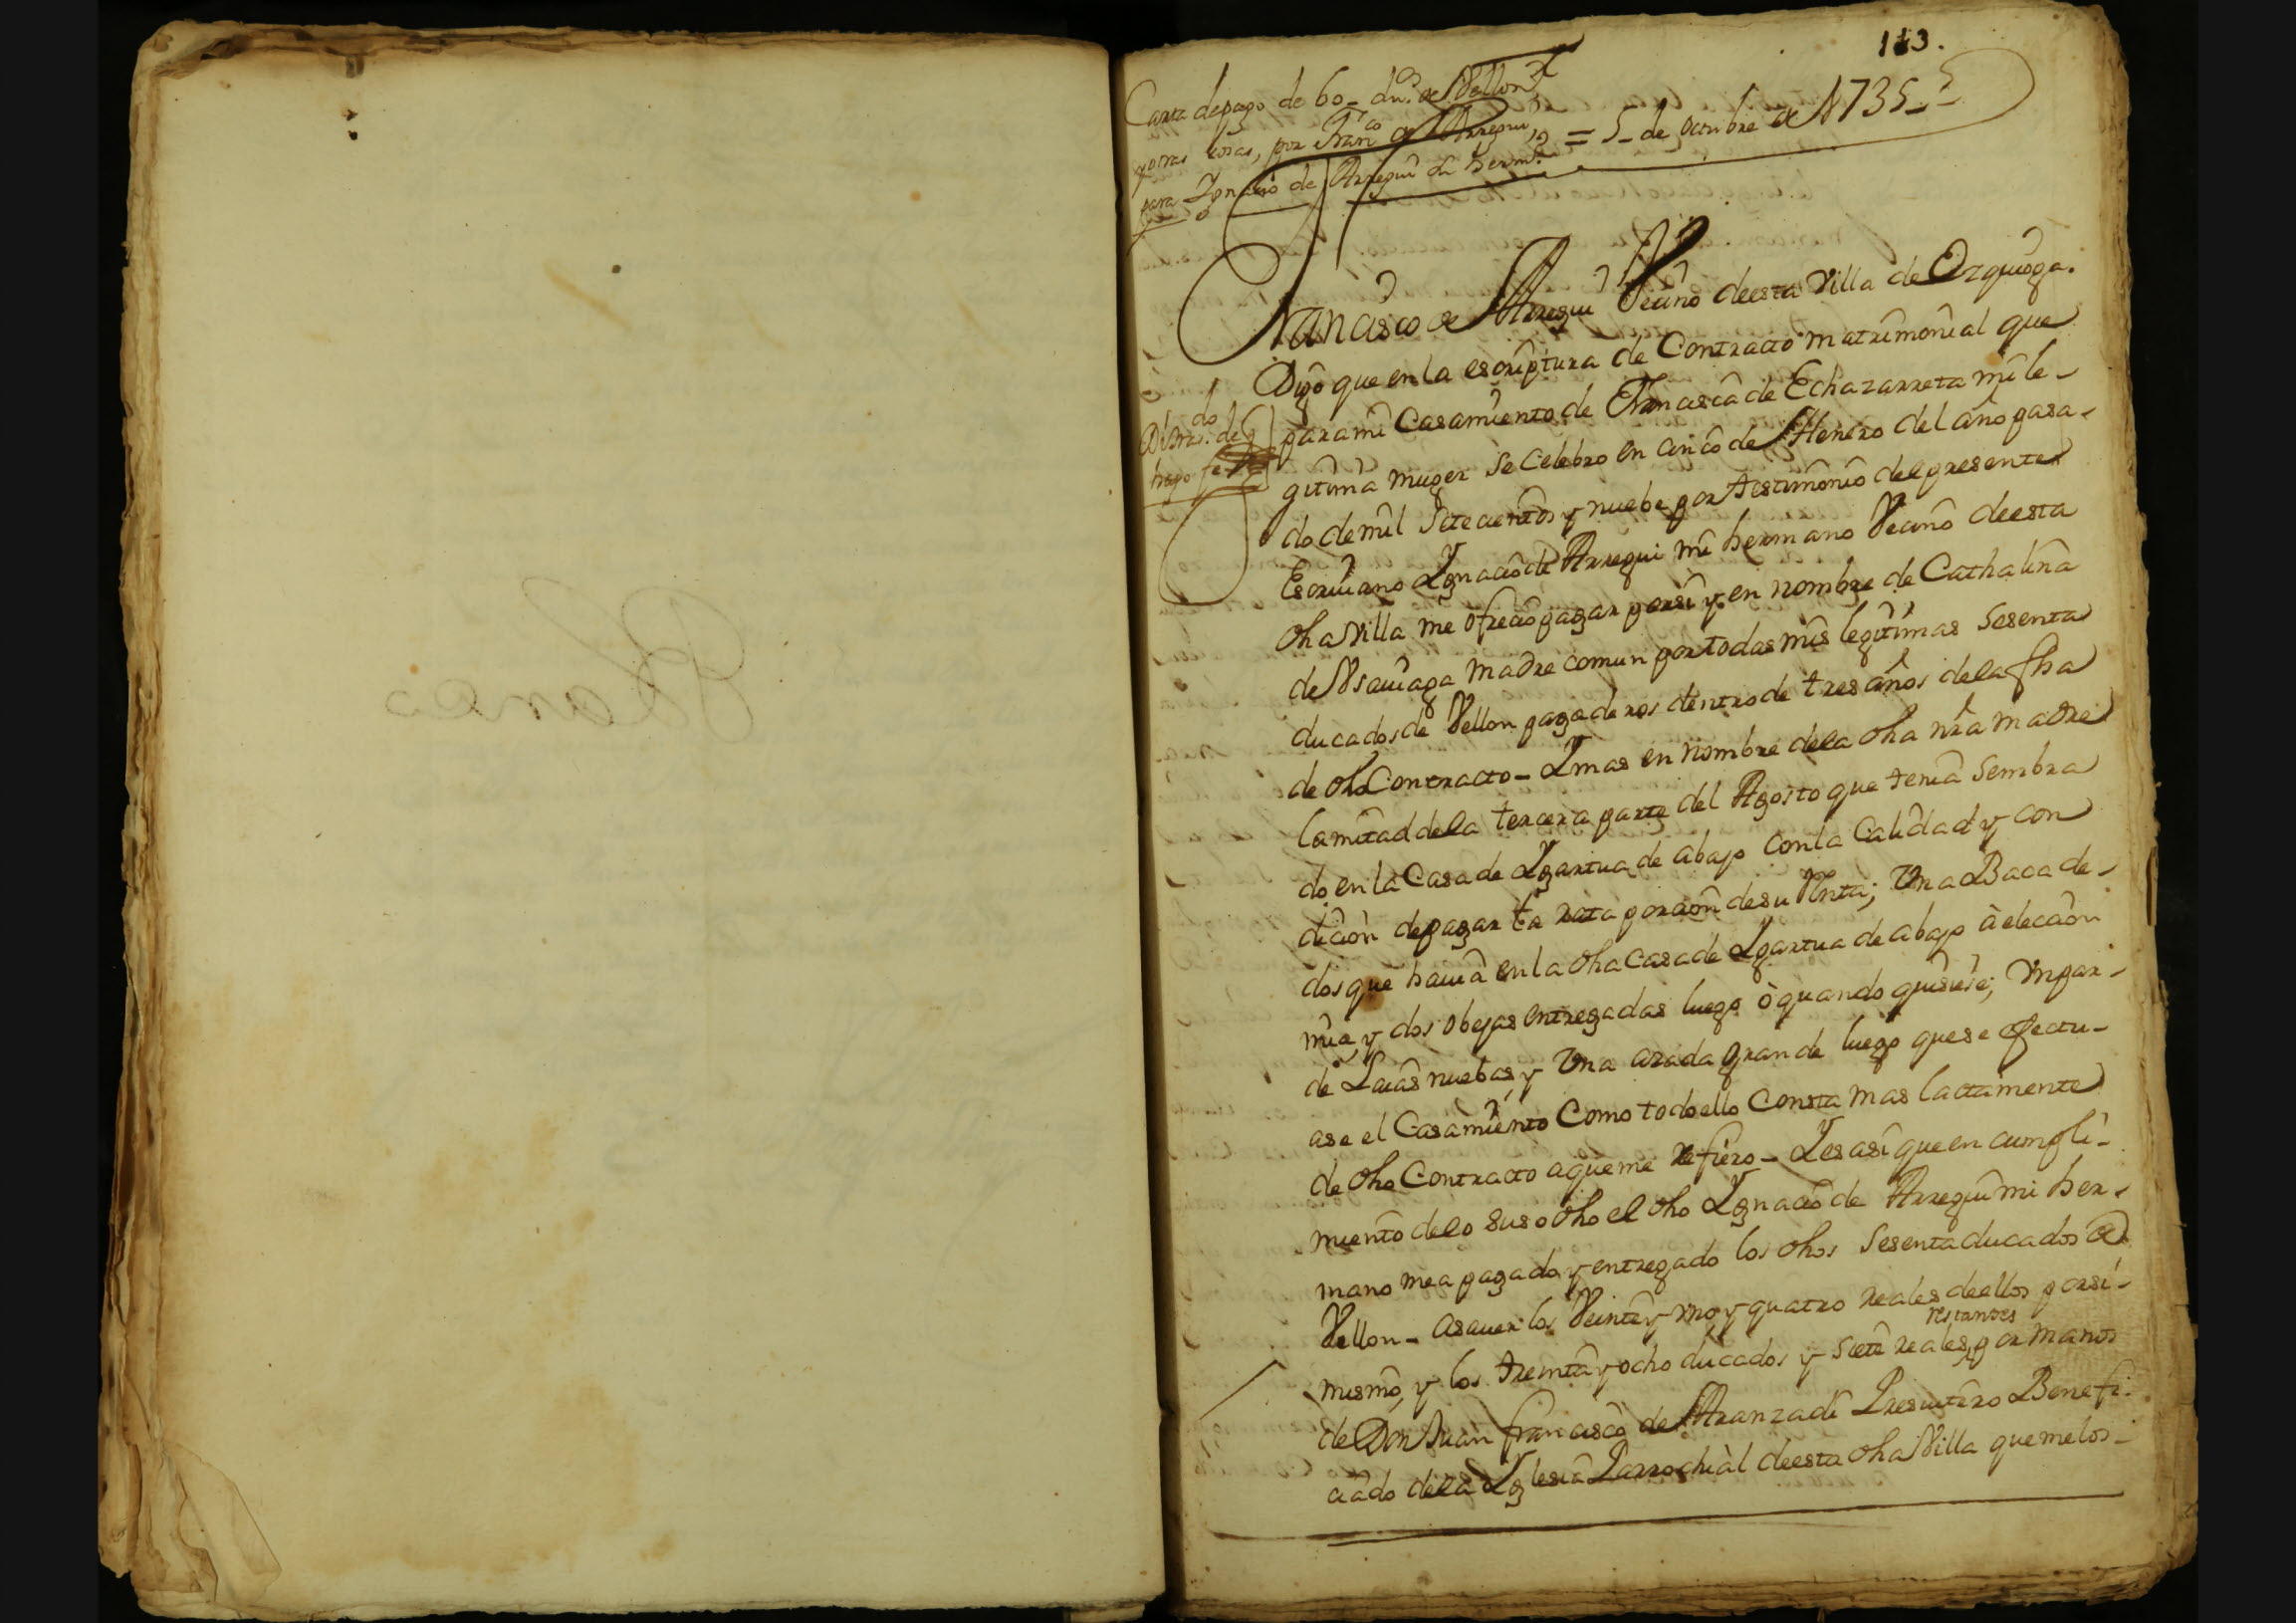 113.
Carta depago de 60_ du.os de Vellon
y otras cosas, por Fran.co de Arregui, = 5_ de octubre de 1735_
para Ygnacio de Arregui su herm.o
Francisco de Arregui Vecino deesta Villa de Ezquioga.
Digo que en la escriptura de Contracto matrimonial que
para mi Casamiento de Francisca de Echazarreta mi le-
gitima muger se Celebro en cinco de Henero del año pasa-
do de mil Setecientos y nuebe por testimonio del presente
Escrivano Ygnacio de Arregui mi hermano Vecino deesta
dha Villa me ofrecio pagar porsi y en nombre de Cathalina
de Vsaviaga madre comun por todas mis legitimas Sesenta
ducados de Vellon pagaderos dentro de tres años dela fha
de dho Contracto_ Ymas en nombre dela dha nra madre
la mitad dela tercera parte del Agosto que tenia Sembra
do en la Casa de Ygartua de abajo con la Calidad y con
dicion depagar la rata porcion de su Renta; Vna Baca de-
dos que havia en la dha Casa de Ygartua de abajo à eleccion
mia, y dos obejas entregadas luego ò quando quisiese; Vn par-
de Laias nuebas, y Vna azada grande luego que se efectu-
ase el Casamiento Como todo ello Consta mas lactamente
de dho Contracto a que me refiero_ Y es asi que en cumpli-
miento delo suso dho el dho Ygnacio de Arregui mi her-
mano me a pagado y entregado los dhos Sesenta ducados de
Vellon_ asaver los Veinte y vno y quatro reales deellos porsi-
mismo, y los treinta y ocho ducados y siete reales restantes por manos
de Don Juan francisco de Aranzadi Presvitero Benefi-
ciado dela Yglesia Parrochial deesta dha Villa que me los_
do
hago fe